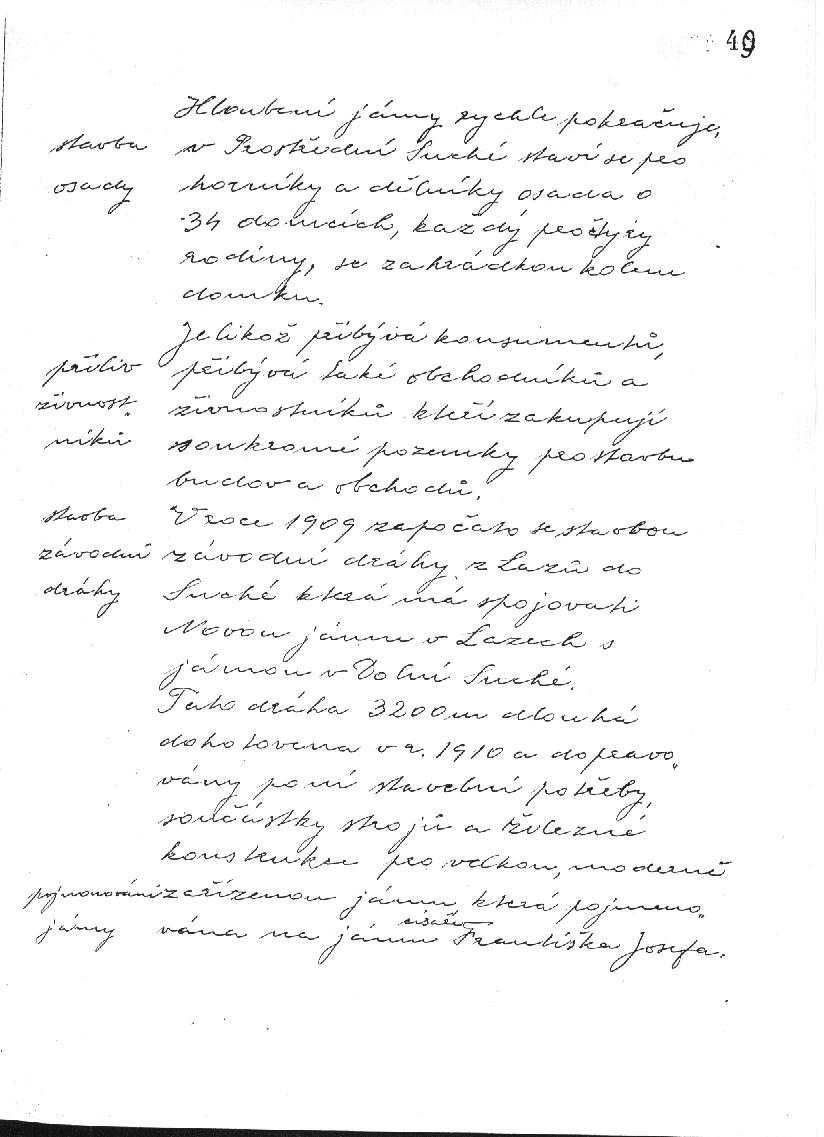 49
Hloubení jámy rychle pokračuje,
stavba v Prostřední Suché staví se pro
osady horníky a dělníky osada o
34 domcích, každý pročtyry
rodiny, se zahrádkou kolem
domku.
Jelikož přibývá konsumentů,
příliv přibývá také obchodníků a
živnost„ živnostníků kteří zakupují
níků soukromé pozemky pro stavbu
budov a obchodů.
stavba V roce 1909 započato se stavbou
závodní závodní dráhy z Lazů do
dráhy Suché která má spojovati
Novou jámu v Lazech s
jámou v Dolní Suché.
Tato dráha 3200m dlouhá
dohotovena v r. 1910 a dopravo„
vány po ní stavební potřeby,
součástky strojů a železné
konstrukce pro velkou, moderně
pojmenování zařízenou jámu, která pojmeno„
jámy vána na jámu císaře Františka Josefa.